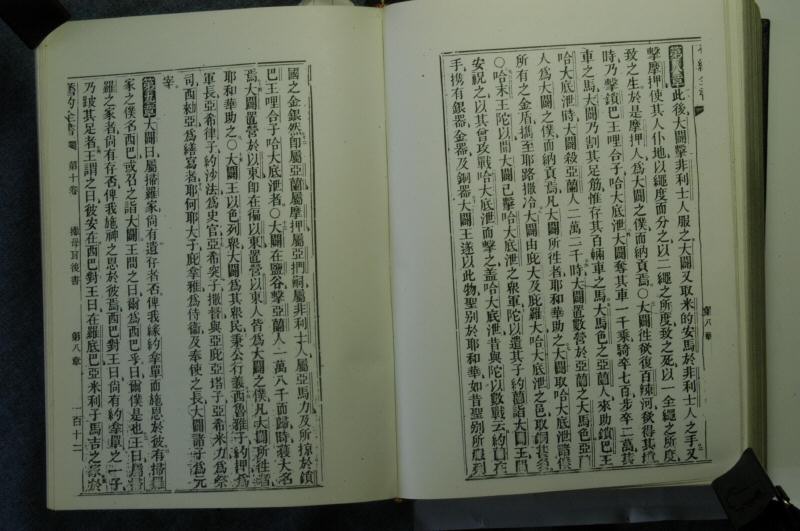 第八章此後大闢擊非利士人服之大闢又取米的安馬於非利士人之手又
擊摩押使其人仆地以繩度而分之以二繩之所度致之死以一全繩之所度
致之生於是摩押人為大闢之僕而納貢焉○大闢往欲復百辣河欲得其
時乃擊鎖巴王哩合子哈大底泄大闢奪其車一千乘騎卒七百步卒二萬其
車之馬大闢乃割其足筋惟存其百輛車之馬大馬色之亞蘭人來助鎖巴王
哈大底泄時大闢殺亞蘭人二萬二千時大闢置數營於亞蘭之大馬色亞蘭
人為大闢之僕而納貢焉凡大闢所往者耶和華助之大闢取哈大底泄諸僕
所有之金盾攜至耶路撒冷大闢由庇大及庇羅大哈大底泄之邑取銅
○哈末王陀以聞大闢已擊哈大底泄之眾軍陀以遣其子約蘭詣大闢王
安祝之以其曾攻戰哈大底泄而擊之蓋哈大底泄昔與陀以數戰云約
手攜有銀器金器及銅器大闢王遂以此物聖別於耶和華如昔聖別所
第八章
國之金銀然即屬亞蘭屬摩押屬亞捫嗣屬非利士人屬亞馬力及所掠於鎖
巴王哩合子哈大底泄者○大闢在鹽谷擊亞蘭人一萬八千而歸時獲大名
焉大闢置營於以東即在徧以東置營以東人皆為大闢之僕凡大闢所往者
耶和華助之○大闢王以色列眾大闢為其眾民秉公行義西魯雅子約押為
軍長亞希律子約沙法為史官亞希突子撒督與亞庇亞塔子亞希米力為祭
司西賴亞為繕寫者耶何耶大子庇拿雅為侍衞及奉使之長大闢諸子為元
宰
第九章大闢曰屬掃羅家尚有遺存者否俾我緣約拿單而施恩於彼有掃羅
家之僕名西巴或召之詣大闢王問之曰爾為西巴乎曰爾僕是也王曰屬掃
羅之家者尚有存否俾我施神之恩於彼焉西巴對王曰尚有約拿單之一子
乃跛其足者王謂之曰彼安在西巴對王曰在羅底巴亞米利子馬吉之家於
舊約全書 第十卷 撒母耳後書 第八章 一百十二